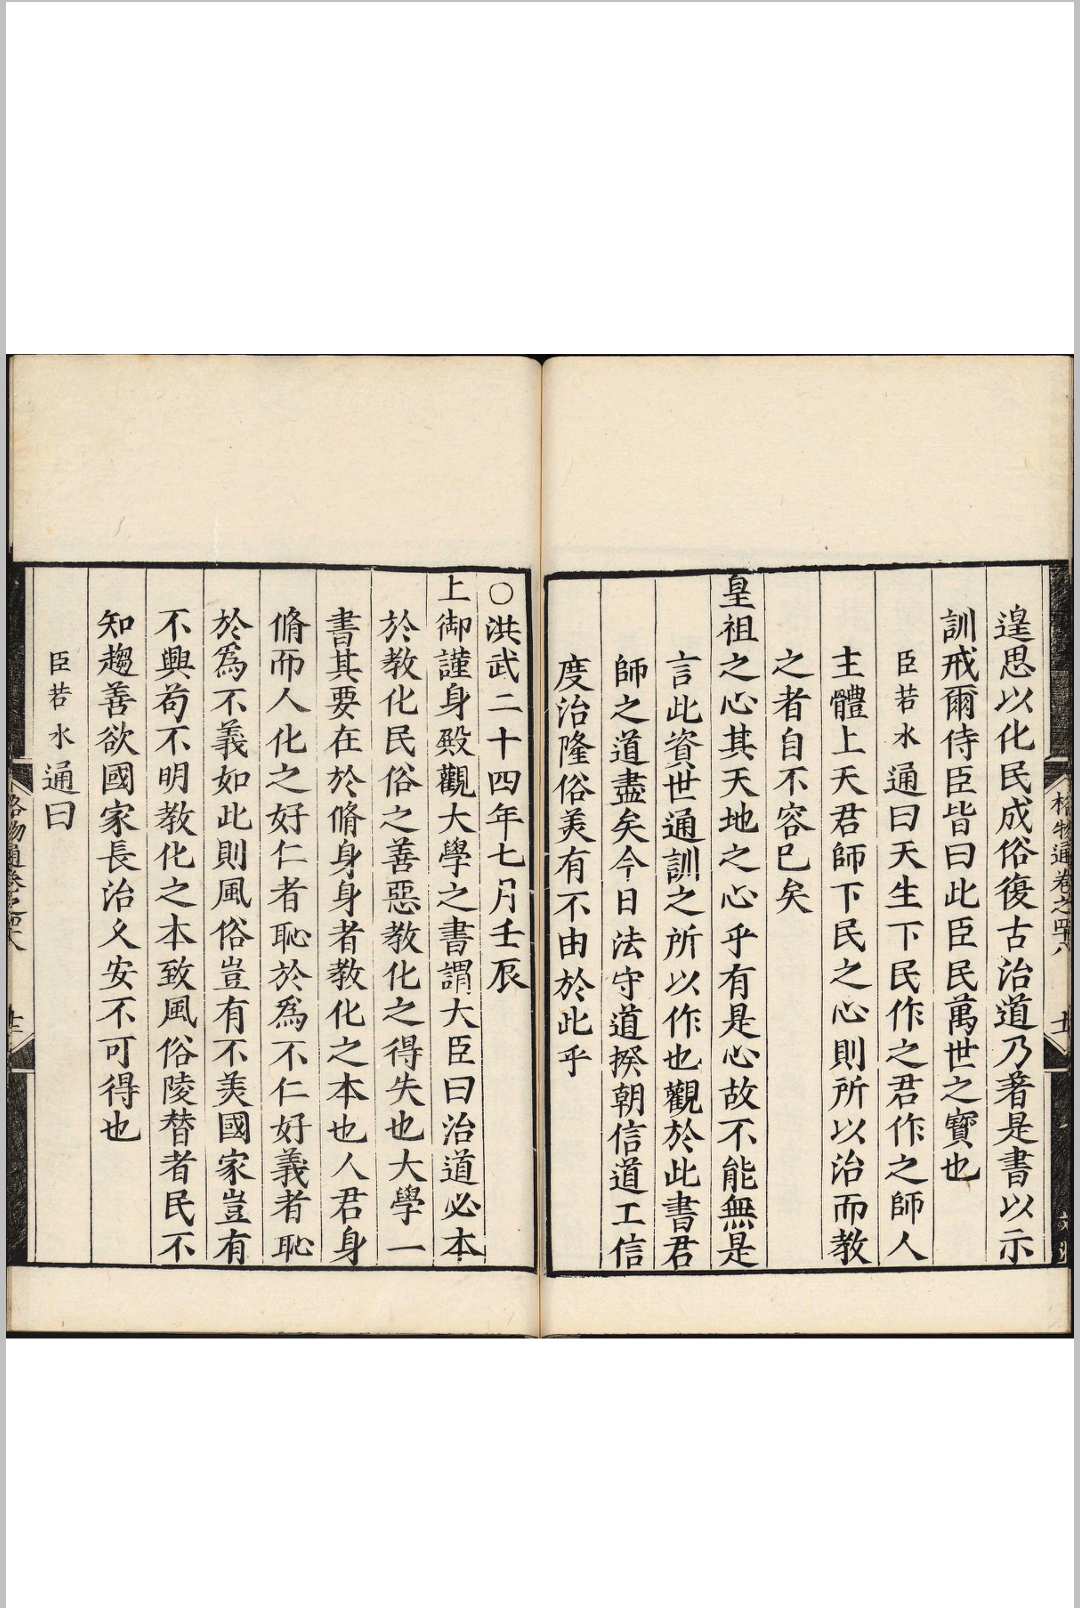 遑思以化民成俗復古治道乃著是書以示
訓戒爾侍臣皆曰此臣民萬世之寳也
臣若水通曰天生下民作之君作之師人
主體上天君師下民之心則所以治而教
之者自不容已矣
皇祖之心其天地之心乎有是心故不能無是
言此資世通訓之所以作也觀於此書君
師之道盡矣今日法守道揆朝信道工信
度治隆俗美有不由於此乎
○洪武二十四年七月壬辰
上御謹身殿觀大學之書謂大臣曰治道必本
於教化民俗之善惡教化之得失也大學一
書其要在於脩身身者教化之本也人君身
脩而人化之好仁者恥於爲不仁好義者恥
於爲不義如此則風俗豈有不美國家豈有
不興苟不明教化之本致風俗陵替者民不
知趨善欲國家長治久安不可得也
臣若水通曰
格物通卷之四十八